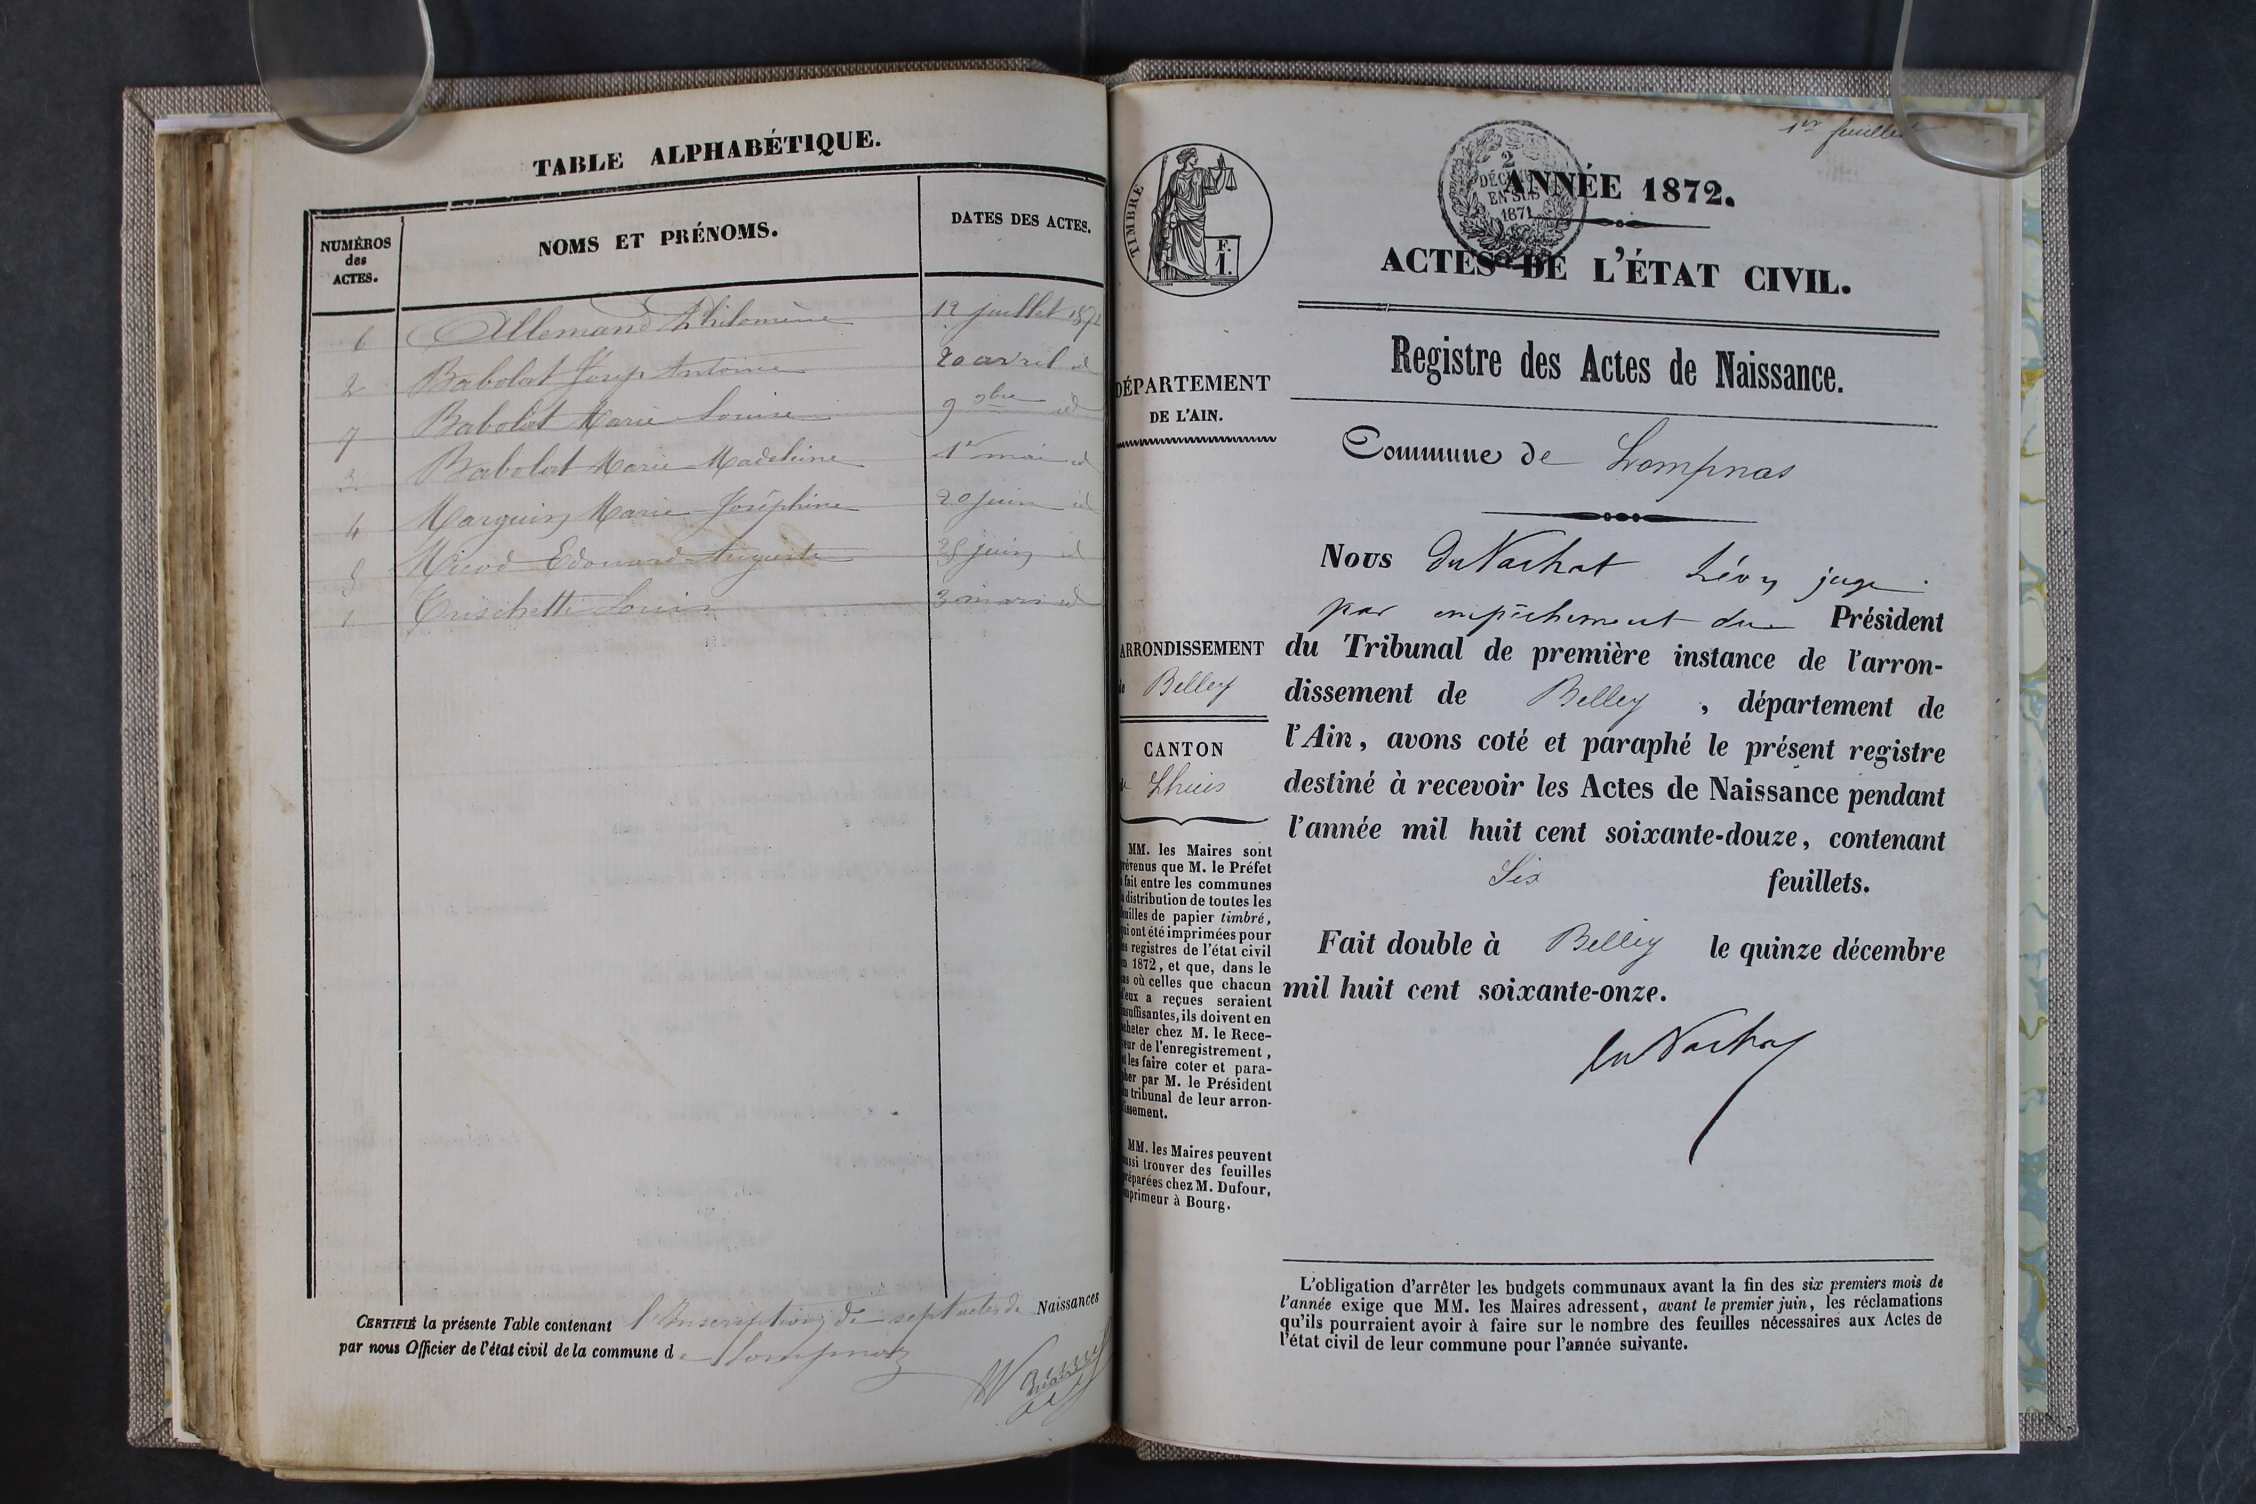 TABLE ALPHABÉTIQUE.
NUMÉROS
des
ACTES.
NOMS ET PRÉNOMS.
DATES DES ACTES.
6 Allemand Philomène 12 juillet 1872
2 Babolat Josep Antoine 20 avril id
7 Babolat Marie Louise 9 9bre id
3 Babolat Marie Madeleine 1er mai id
4 Marguin Marie Joséphine 20 juin id
5 Micod Edouard Auguste 25 juin id
1 Trischetti Louis 3 mars id
CERTIFIÉ la présente Table contenant l'Inscription de sept actes de Naissances
par nous Officier de l'état civil de la commune de Lompnas
1er feuillet
TIMBRE
F.
1.
2
DÉCIMES
EN SUS
1871
ANNÉE 1872.
ACTES DE L'ÉTAT CIVIL.
Registre des Actes de Naissance.
DÉPARTEMENT
DE L'AIN.
Commune de Lompnas
Nous du Nachat Léon juge
par empêchement du Président
du Tribunal de première instance de l'arron-
dissement de Belley, département de
l'Ain, avons coté et paraphé le présent registre
destiné à recevoir les Actes de Naissance pendant
l'année mil huit cent soixante-douze, contenant
Six feuillets.
Fait double à Belley le quinze décembre
mil huit cent soixante-onze.
du Nachat
ARRONDISSEMENT
de Belley
CANTON
de Lhuis
MM. les Maires sont
prévenus que M. le Préfet
a fait entre les communes
la distribution de toutes les
feuilles de papier timbré,
qui ont été imprimées pour
les registres de l'état civil
en 1872, et que, dans le
cas où celles que chacun
d'eux a reçues seraient
insuffisantes, ils doivent en
acheter chez M. le Rece-
veur de l'enregistrement,
et les faire coter et para-
pher par M. le Président
du tribunal de leur arron-
dissement.
MM. les Maires peuvent
aussi trouver des feuilles
préparées chez M. Dufour,
imprimeur à Bourg.
L'obligation d'arrêter les budgets communaux avant la fin des six premiers mois de
l'année exige que MM. les Maires adressent, avant le premier juin, les réclamations
qu'ils pourraient avoir à faire sur le nombre des feuilles nécessaires aux Actes de
l'état civil de leur commune pour l'année suivante.